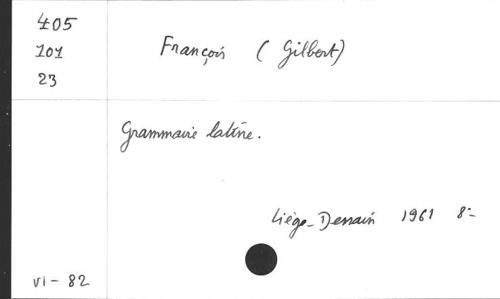 405
101
23
François (Gilbert)
Grammaire latine.
Liége-Dessain 1961 8=
VI - 82